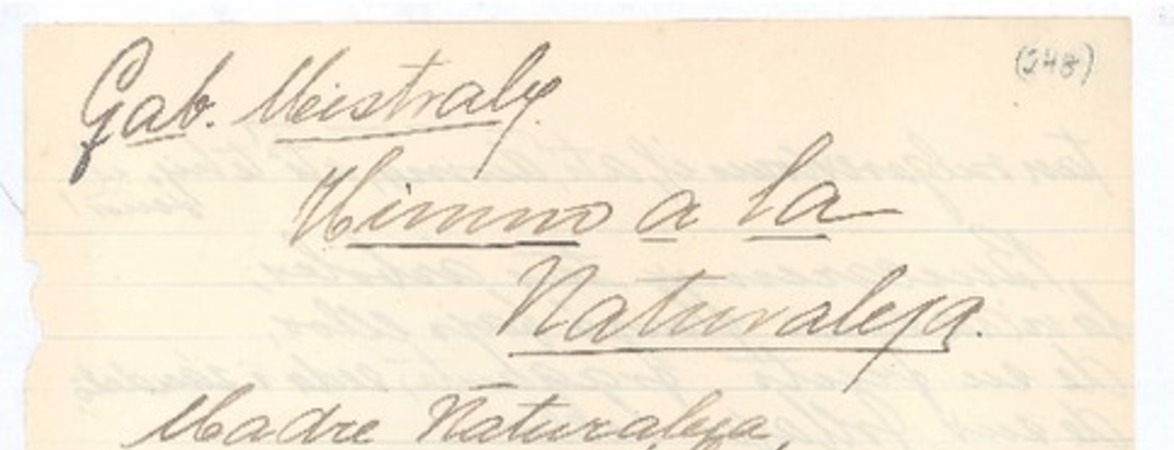 Gab. Mistraly.
(248)
Himno a la
Naturaleza.
Madre Naturaleza,